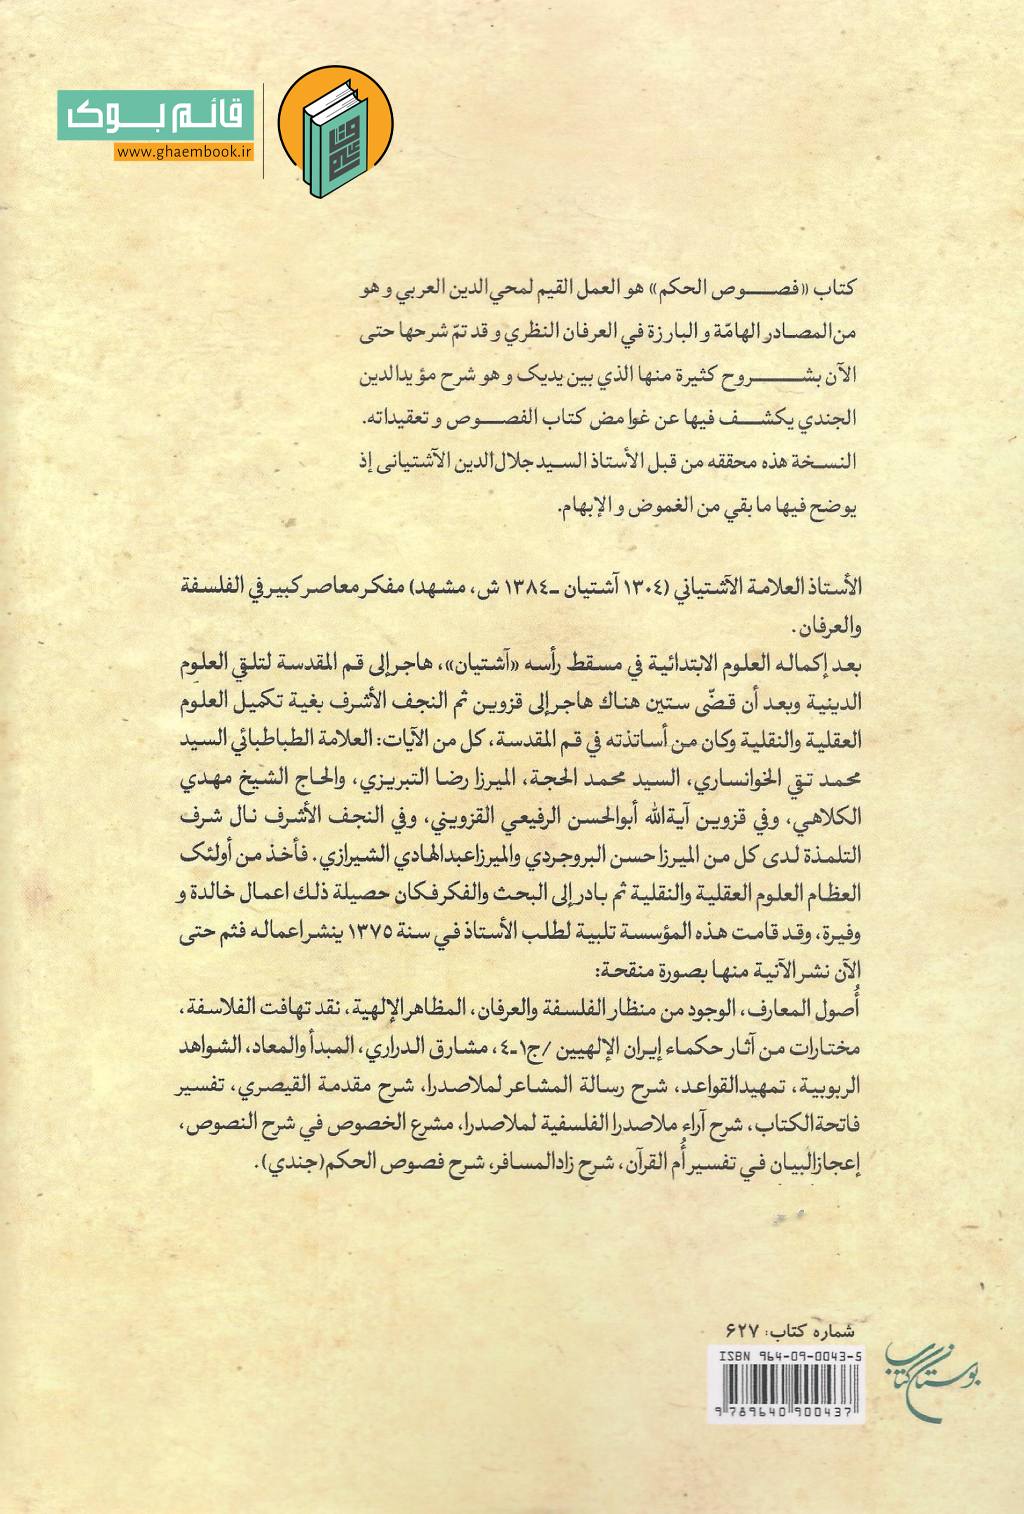 قائم بوک
www.ghaembook.ir
کتاب «فصوص الحکم» هو العمل القیم لمحي‌الدین العربي و هو
من المصادر الهامّة و البارزة في العرفان النظري و قد تمّ شرحها حتی
الآن بشروح کثیرة منها الذي بین یدیک و هو شرح مؤیدالدین
الجندي یکشف فیها عن غوامض کتاب الفصوص و تعقیداته.
النسخة هذه محققه من قبل الأستاذ السید جلال‌الدین الآشتیانی إذ
یوضح فیها ما بقي من الغموض و الإبهام.
الأستاذ العلامة الآشتیاني (۱۳۰٤ آشتیان ـ ۱۳۸٤ ش، مشهد) مفکر معاصر کبیر في الفلسفة
والعرفان.
بعد إکماله العلوم الابتدائیة في مسقط رأسه «آشتیان»، هاجر إلی قم المقدسة لتلقي العلوم
الدینیة وبعد أن قضّی ستین هناك هاجر إلی قزوین ثم النجف الأشرف بغیة تکمیل العلوم
العقلیة والنقلیة وکان من أساتذته في قم المقدسة، کل من الآیات: العلامة الطباطبائي السید
محمد تقي الخوانساري، السید محمد الحجة، المیرزا رضا التبریزي، والحاج الشیخ مهدي
الکلاهي، وفي قزوین آیةالله أبوالحسن الرفیعي القزویني، وفي النجف الأشرف نال شرف
التلمذة لدی کل من المیرزا حسن البروجردي والمیرزا عبدالهادي الشیرازي. فأخذ من أولئک
العظام العلوم العقلیة والنقلیة ثم بادر إلی البحث والفکر فکان حصیلة ذلك اعمال خالدة و
وفیرة، وقد قامت هذه المؤسسة تلبیة لطلب الأستاذ في سنة ۱۳۷۵ ینشر اعماله فثم حتی
الآن نشر الآتیة منها بصورة منقحة:
أُصول المعارف، الوجود من منظار الفلسفة والعرفان، المظاهر الإلهیة، نقد تهافت الفلاسفة،
مختارات من آثار حکماء إیران الإلهیین /ج۱ـ٤، مشارق الدراري، المبدأ والمعاد، الشواهد
الربوبیة، تمهید القواعد، شرح رسالة المشاعر لملاصدرا، شرح مقدمة القیصري، تفسیر
فاتحة‌الکتاب، شرح آراء ملاصدرا الفلسفیة لملاصدرا، مشرع الخصوص في شرح النصوص،
إعجازالبیان في تفسیر أُم القرآن، شرح زادالمسافر، شرح فصوص الحکم(جندي).
شماره کتاب: ۶۲۷
ISBN 964-09-0043-5
9 789640 900437
بوستان کتاب